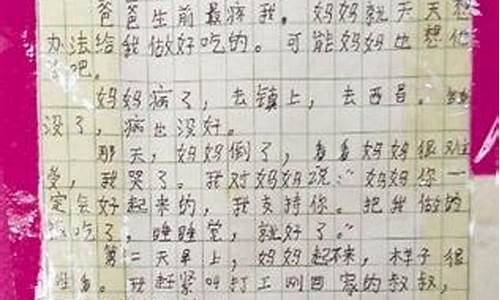 爸爸生前最疼我。妈妈就天天想
办法给我做好吃的。可能妈妈也想他
了吧。
妈妈病了，去镇上，去西昌。钱
没了，病也没好。
那天，妈妈倒了，看看妈妈很难
受，我哭了。我对妈妈说：“妈妈你一
定会好起来的，我支持你。把我做的
饭吃了，睡睡觉，就好了。”
第二天早上，妈妈起不来，样子很
难受。我赶紧叫打工刚回家的叔叔，